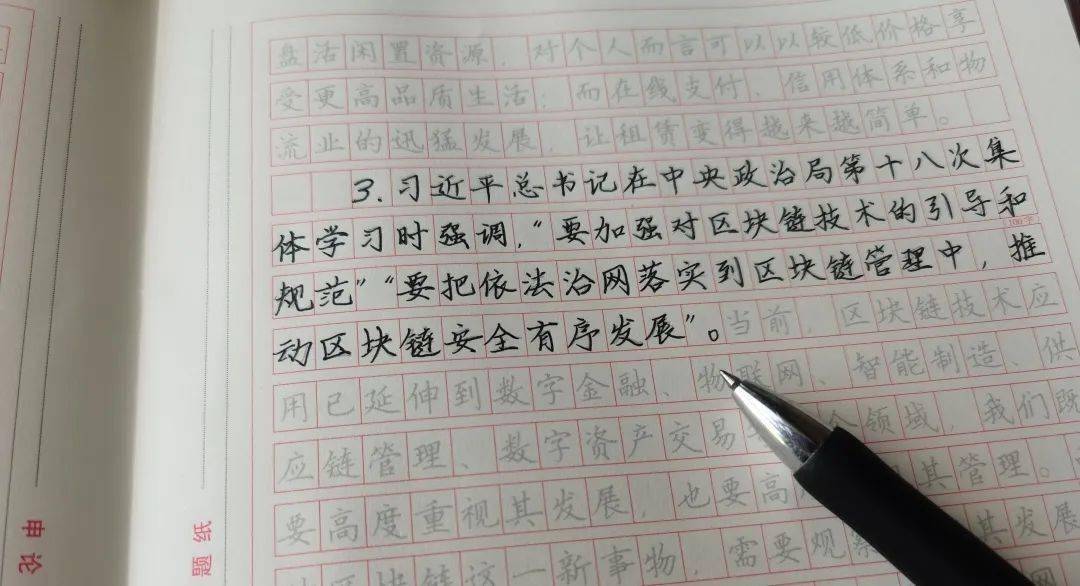 盘活闲置资源，对个人而言可以以较低价格享
受更高品质生活；而在线支付、信用体系和物
流业的迅猛发展，让租赁变得越来越简单。
3.习近平总书记在中央政治局第十八次集
体学习时强调，“要加强对区块链技术的引导和
规范”“要把依法治网落实到区块链管理中，推
动区块链安全有序发展”。当前，区块链技术应
用已延伸到数字金融、物联网、智能制造、供
应链管理、数字资产交易 个领域，我们既
要高度重视其发展，也要高 其管理。
区块链这一新事物，需要观察 其发展
100字
申论
题纸